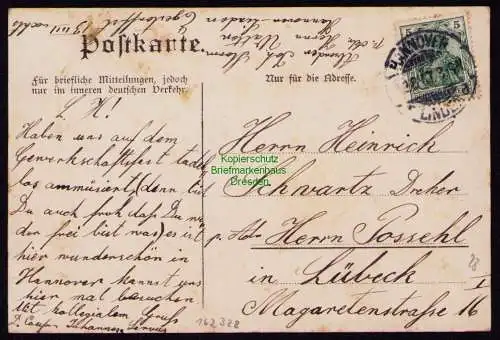 Postkarte.
Für briefliche Mitteilungen, jedoch
nur im inneren deutschen Verkehr.
Nur für die Adresse.
5 5
HANNOVER
LINDEN
L. K!
Haben uns auf dem
Gewerkschaftsfest tadel
los ammüsiert, denn bist
Du auch froh daß Du
der frei bist was) es ist
hier wunderschön in
Hannover kannst uns
hier mal besuchen
Mit kollegialem Gruß
Johannes
Herrn Heinrich
Schwartz Dreher
Herrn Possehl
in Lübeck
Magaretenstrasse 16
Kopierschutz
Briefmarkenhaus
Dresden
Hannover Linden
162 328